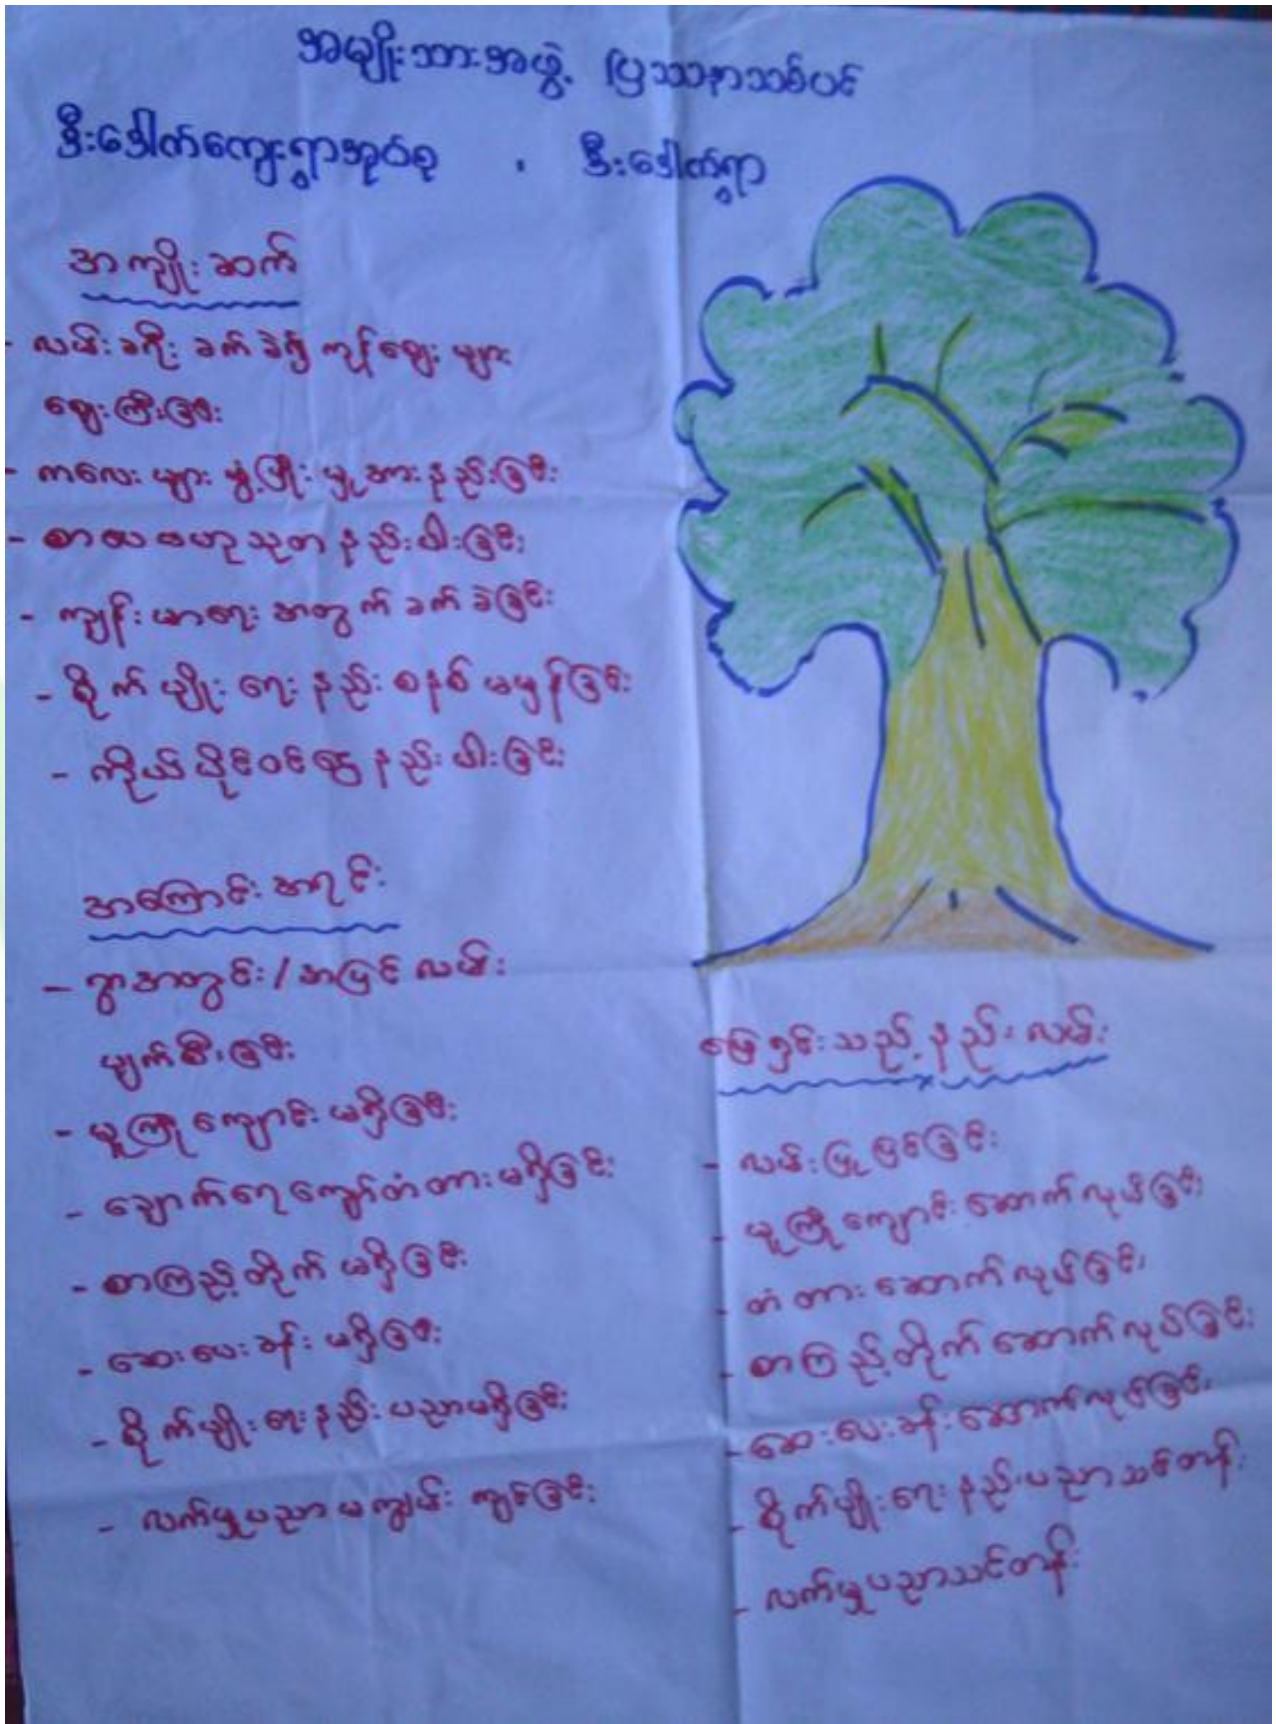 အမျိုးသားအဖွဲ့ ပြဿနာသစ်ပင်
ဒီးဒေါက်ကျေးရွာအုပ်စု ၊ ဒီးဒေါက်ရွာ
အကျိုးဆက်
- လမ်းခရီး ခက်ခဲ၍ ကုန်ဈေးများ
ဈေးကြီးခြင်း
- ကလေးများ ဖွံ့ဖြိုးမှု အားနည်းခြင်း
- စာပေဗဟုသုတ နည်းပါးခြင်း
- ကျန်းမာရေး အတွက် ခက်ခဲခြင်း
- စိုက်ပျိုးရေးနည်းစနစ် မမှန်ခြင်း
- ကိုယ်ပိုင်ဝင်ငွေ နည်းပါးခြင်း
အကြောင်းအရင်း
- ရွာအတွင်း/အပြင်လမ်း
ပျက်စီးခြင်း
- မူကြိုကျောင်း မရှိခြင်း
- ချောက်ရေကျော်တံတား မရှိခြင်း
- စာကြည့်တိုက် မရှိခြင်း
- ဆေးပေးခန်း မရှိခြင်း
- စိုက်ပျိုးရေးနည်းပညာမရှိခြင်း
- လက်မှုပညာ မကျွမ်းကျင်ခြင်း
ဖြေရှင်းသည့်နည်းလမ်း
- လမ်းပြုပြင်ခြင်း
- မူကြိုကျောင်းဆောက်လုပ်ခြင်း
- တံတားဆောက်လုပ်ခြင်း
- စာကြည့်တိုက်ဆောက်လုပ်ခြင်း
- ဆေးပေးခန်းဆောက်လုပ်ခြင်း
- စိုက်ပျိုးရေးနည်းပညာသင်တန်း
- လက်မှုပညာသင်တန်း